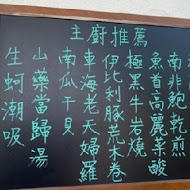 主廚推薦
南非鮑乾煎
魚首高麗菜酸
極黑牛岩燒
伊比利豚荒木卷
車海老天婦羅
南瓜干貝
山藥當歸湯
生蚵潮吸